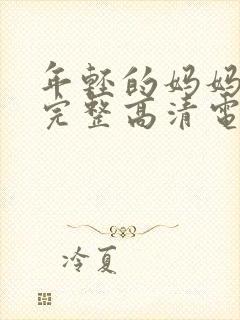 年轻的妈妈
完整高清电
冷夏